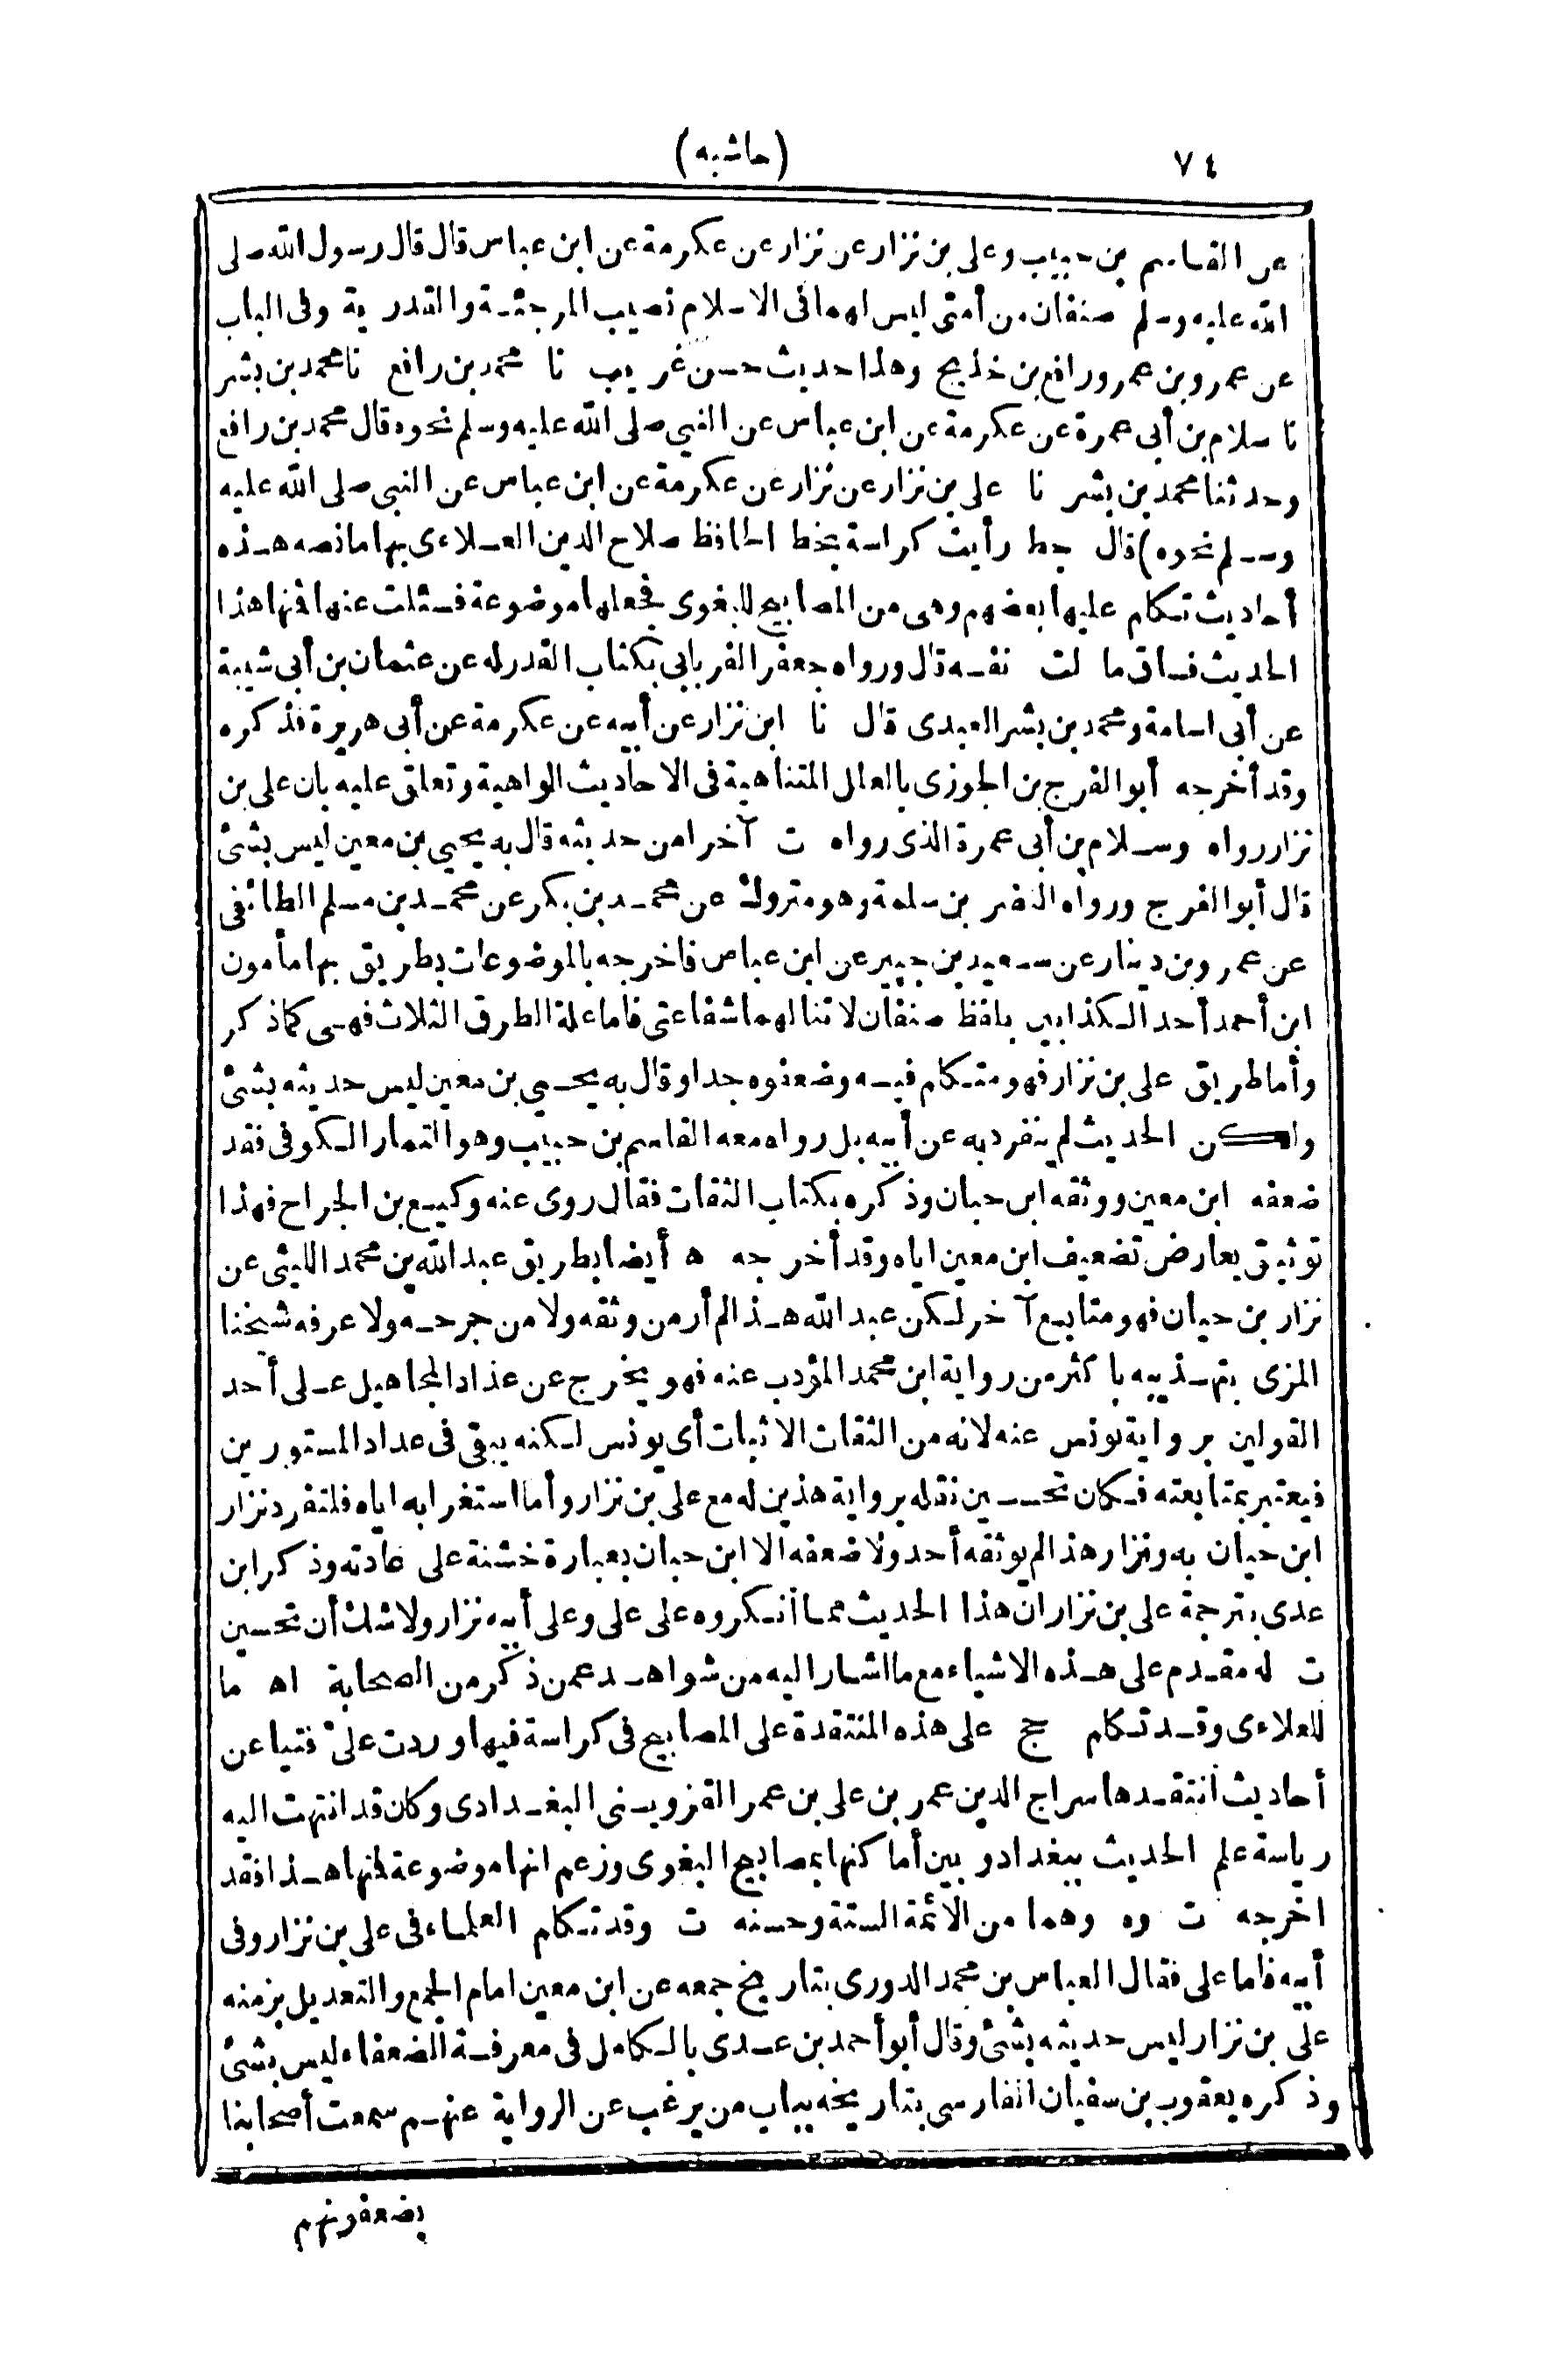 ٧٤
(حاشيه)
عن القاسم بن حبيب وعلى بن نزار عن نزار عن عكرمة عن ابن عباس قال قال رسول الله صلى
الله عليه وسلم صنفان من أمتى ليس لهما فى الاسلام نصيب المرجئة والقدرية وفى الباب
عن عمرو بن عمر ورافع بن خديج وهذا حديث حسن غريب نا محمد بن رافع نا محمد بن بشر
نا سلام بن أبى عمرة عن عكرمة عن ابن عباس عن النبي صلى الله عليه وسلم نحوه قال محمد بن رافع
وحدثنا محمد بن بشر نا على بن نزار عن نزار عن عكرمة عن ابن عباس عن النبي صلى الله عليه
وسلم نحوه) قال جط رأيت كراسة بخط الحافظ صلاح الدين العلاءى بها ما نصه هذه
أحاديث تكلم عليها بعضهم وهى من المصابيح للبغوى فجعلها موضوعة فسئلت عنها فمنها هذا
الحديث فساق ما لت نفسه قال ورواه جعفر الفريابى بكتاب القدر له عن عثمان بن أبى شيبة
عن أبى اسامة ومحمد بن بشر العبدى قال نا ابن نزار عن أبيه عن عكرمة عن أبى هريرة فذكره
وقد أخرجه أبو الفرج بن الجوزى بالعلل المتناهية فى الاحاديث الواهية وتعلق عليه بان على بن
نزار رواه وسلام بن أبى عمرة الذى رواه ت آخرا من حديثه قال به يحيى بن معين ليس بشئ
قال أبو الفرج ورواه النضر بن سلمة وهو متروك عن محمد بن بكر عن محمد بن مسلم الطائفى
عن عمرو بن دينار عن سعيد بن جبير عن ابن عباس فاخرجه بالموضوعات بطريق بها مأمون
ابن أحمد أحد الكذابين بلفظ صنفان لا تنالهما شفاعتى فاما علة الطرق الثلاث فهى كما ذكر
وأما طريق على بن نزار فهو متكلم فيه وضعفوه جدا وقال به يحيى بن معين ليس حديثه بشئ
ولكن الحديث لم ينفرد به عن أبيه بل رواه معه القاسم بن حبيب وهو التمار الكوفى فقد
ضعفه ابن معين ووثقه ابن حبان وذكره بكتاب الثقات فقال روى عنه وكيع بن الجراح فهذا
توثيق يعارض تضعيف ابن معين اياه وقد أخرجه ه أيضا بطريق عبد الله بن محمد الليثى عن
نزار بن حيان فهو متابع آخر لكن عبد الله هذا لم أر من وثقه ولا من جرحه ولا عرفه شيخنا
المزى بتهذيبه باكثر من رواية ابن محمد المؤدب عنه فهو يخرج عن عداد المجاهيل على أحد
القولين برواية يونس عنه لانه من الثقات الاثبات أى يونس لكنه يبقى فى عداد المستورين
فيعتبر بمتابعته فكان تحسين نقله برواية هذين له مع على بن نزار وأما استغرابه اياه فلتفرد نزار
ابن حيان به ونزار هذا لم يوثقه أحد ولا ضعفه الا ابن حبان بعبارة خشنة على عادته وذكر ابن
عدى بترجمة على بن نزار ان هذا الحديث مما أنكروه على على وعلى أبيه نزار ولا شك أن تحسين
ت له مقدم على هذه الاشياء مع ما اشار اليه من شواهد عمن ذكر من الصحابة اه ما
للعلاءى وقد تكلم حج على هذه المنتقدة على المصابيح فى كراسة فيها وردت علىّ فتيا عن
أحاديث أنتقدها سراج الدين عمر بن على بن عمر القزوينى البغدادى وكان قد انتهت اليه
رياسة علم الحديث ببغداد وبين أماكنها بمصابيح البغوى وزعم انها موضوعة فمنها هذا فقد
اخرجه ت وه وهما من الائمة الستة وحسنه ت وقد تكلم العلماء فى على بن نزار وفى
أبيه فاما على فقال العباس بن محمد الدورى بتاريخ جمعه عن ابن معين امام الجمع والتعديل بزمنه
على بن نزار ليس حديثه بشئ وقال أبو أحمد بن عدى بالكامل فى معرفة الضعفاء ليس بشئ
وذكره يعقوب بن سفيان الفارسى بتاريخه بباب من يرغب عن الرواية عنهم سمعت أصحابنا
يضعفونهم